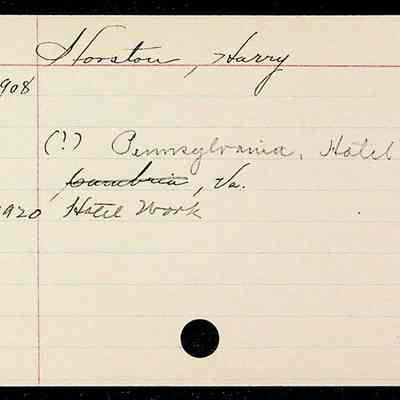 Horston, Harry
908
(?) Pennsylvania, Hotel
Cambria, Va.
1920 Hotel Work